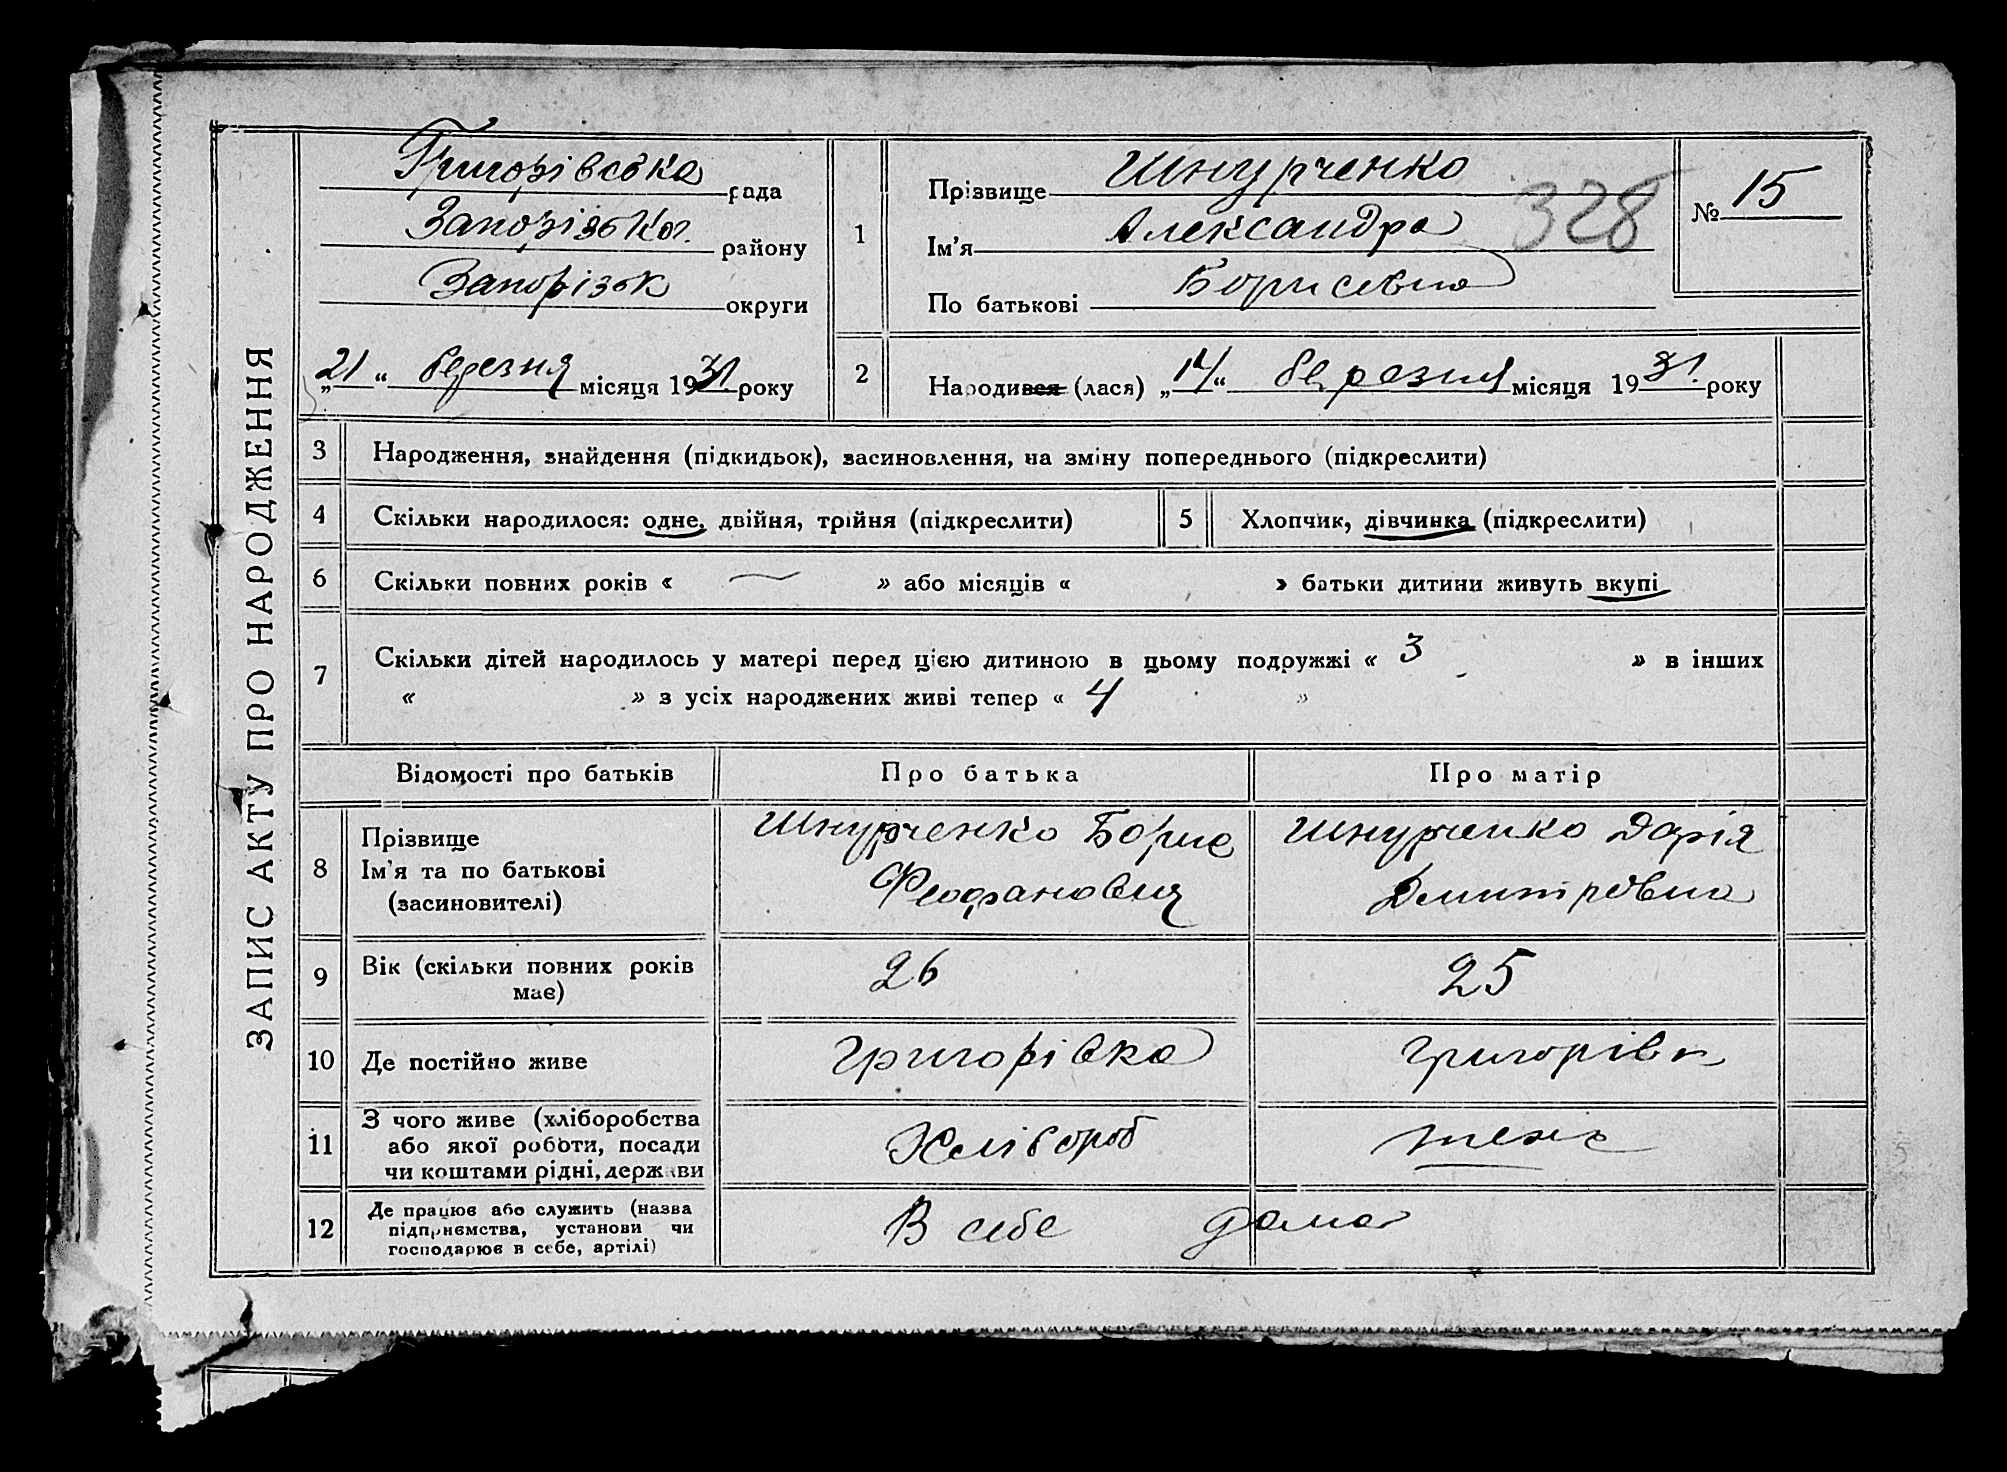 ЗАПИС АКТУ ПРО НАРОДЖЕННЯ
Григорівська рада
Запорізьког. району
Запорізьк округи
„21“ березня місяця 1931 року
1
Прізвище Шнурченко
Ім'я Александра
По батькові Борисевна
328
№ 15
2
Народився (лася) „14“ березня місяця 1931. року
3 Народження, знайдення (підкидьок), засиновлення, на зміну попереднього (підкреслити)
4 Скільки народилося: одне, двійня, трійня (підкреслити)
5 Хлопчик, дівчинка (підкреслити)
6 Скільки повних років « — » або місяців « » батьки дитини живуть вкупі
7 Скільки дітей народилось у матері перед цією дитиною в цьому подружжі « 3 » в інших
« » з усіх народжених живі тепер « 4 »
Відомості про батьків Про батька Про матір
8 Прізвище
Ім'я та по батькові
(засиновителі)
Шнурченко Борис
Феофанович
Шнурченко Дарія
Дмитровна
9 Вік (скільки повних років
має)
26 25
10 Де постійно живе Григорівка Григорівк
11 З чого живе (хліборобства
або якої роботи, посади
чи коштами рідні, держави
Хлібороб
12 Де працює або служить (назва
підприємства, установи чи
господарює в себе, артілі)
В себе дома